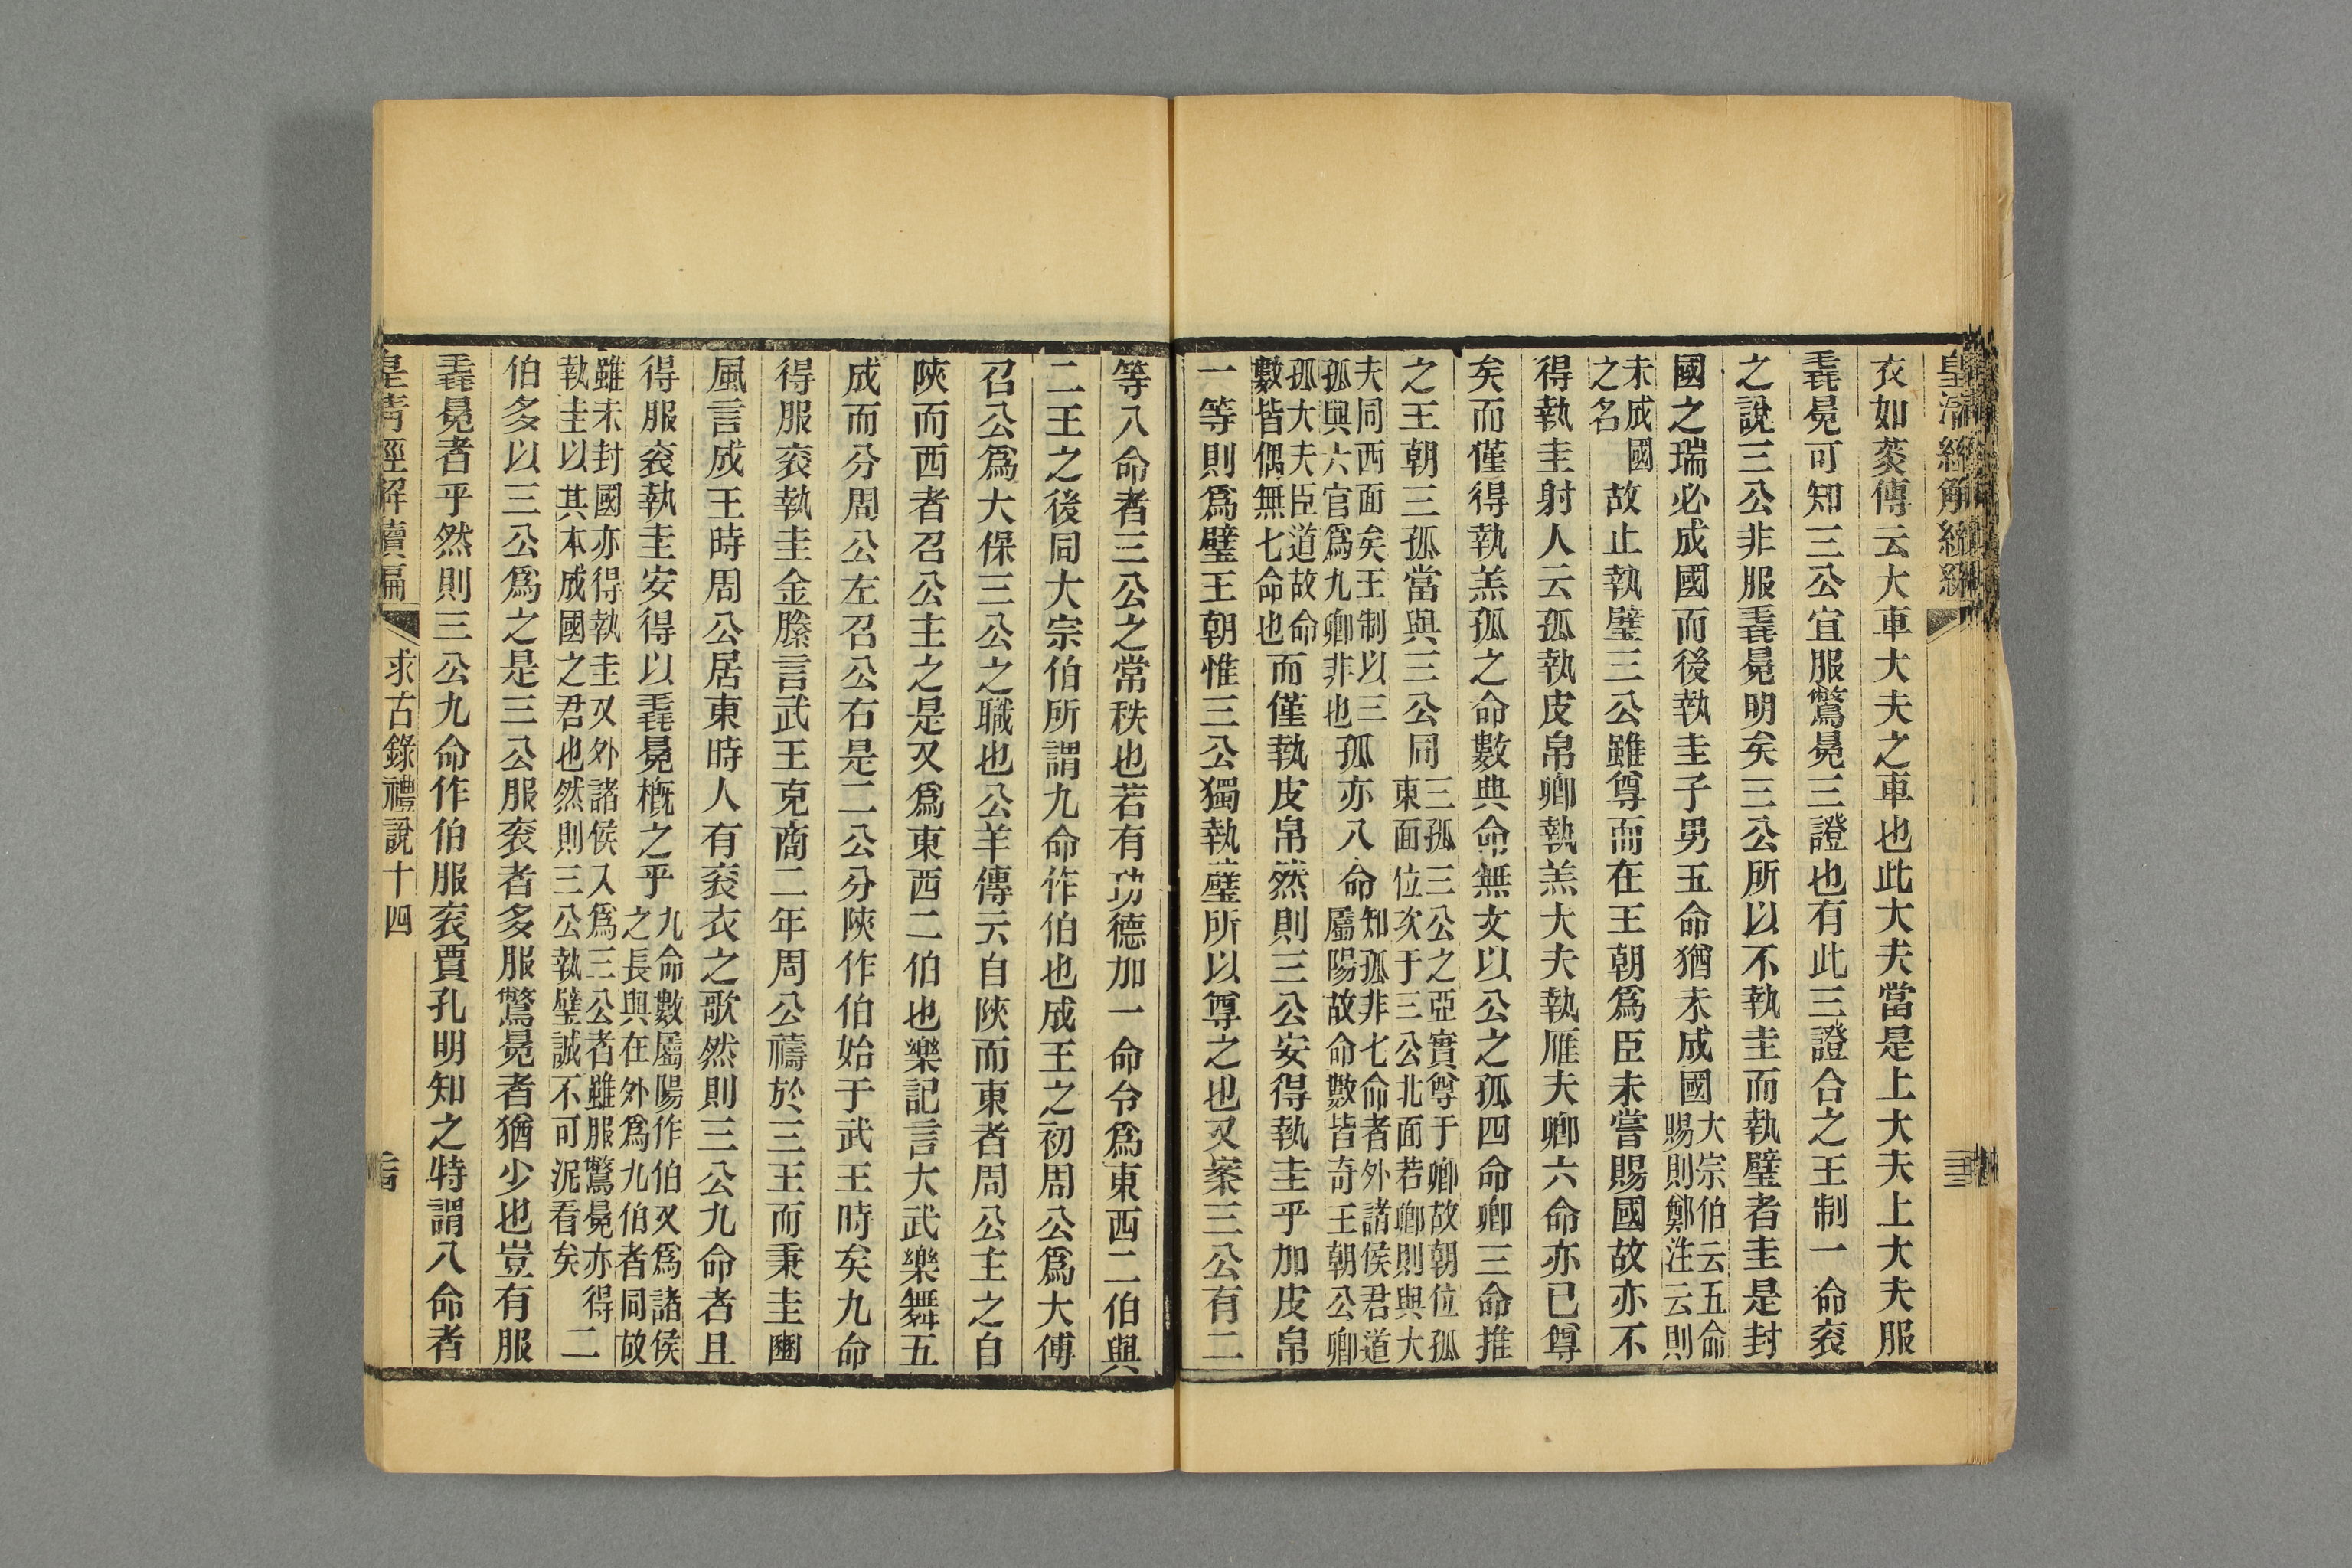 衣如菼傳云大車大夫之車也此大夫當是上大夫上大夫服
毳冕可知三公宜服鷩冕三證也有此三證合之王制一命衮
之說三公非服毳冕明矣三公所以不執圭而執璧者圭是封
國之瑞必成國而後執圭子男五命猶未成國大宗伯云五命賜則鄭注云則
未成國之名故止執璧三公雖尊而在王朝爲臣未嘗賜國故亦不
得執圭射人云孤執皮帛卿執羔大夫執雁夫卿六命亦已尊
矣而僅得執羔孤之命數典命無文以公之孤四命卿三命推
之王朝三孤當與三公同三孤三公之亞實尊于卿故朝位孤東面位次于三公北面若卿則與大
夫同西面矣王制以三孤與六官爲九卿非也孤亦八命知孤非七命者外諸侯君道屬陽故命數皆奇王朝公卿
孤大夫臣道故命數皆偶無七命也而僅執皮帛然則三公安得執圭乎加皮帛
一等則爲璧王朝惟三公獨執璧所以尊之也又案三公有二
等八命者三公之常秩也若有功德加一命令爲東西二伯與
二王之後同大宗伯所謂九命作伯也成王之初周公爲大傅
召公爲大保三公之職也公羊傳云自陜而東者周公主之自
陜而西者召公主之是又爲東西二伯也樂記言大武樂舞五
成而分周公左召公右是二公分陜作伯始于武王時矣九命
得服衮執圭金縢言武王克商二年周公禱於三王而秉圭豳
風言成王時周公居東時人有衮衣之歌然則三公九命者且
得服衮執圭安得以毳冕概之乎九命數屬陽作伯又爲諸侯之長與在外爲九伯者同故
雖未封國亦得執圭又外諸侯入爲三公者雖服鷩冕亦得執圭以其本成國之君也然則三公執璧誠不可泥看矣二
伯多以三公爲之是三公服衮者多服鷩冕者猶少也豈有服
毳冕者乎然則三公九命作伯服衮賈孔明知之特謂八命者
皇清經解續編
求古錄禮說十四